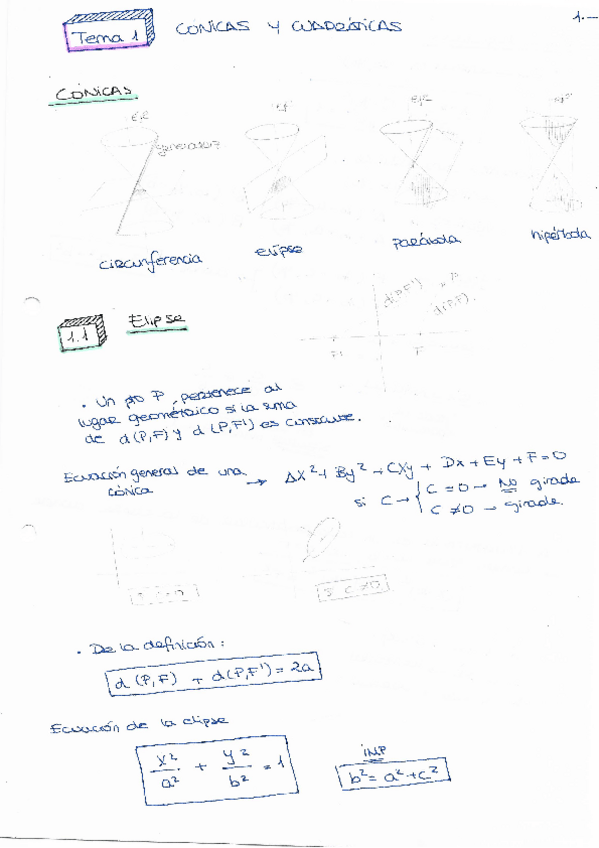 1.-
Tema 1 CÓNICAS Y CUADRÁTICAS
CÓNICAS
eje
eje
generatriz
circunferencia elipse parábola hipérbola
d(P,F') P
d(P,F)
F' F
1.1 Elipse
· Un pto P, pertenece al
lugar geométrico si la suma
de d(P,F) y d(P,F') es constante.
Ecuación general de una cónica → Ax²+ By²+CXy + Dx+Ey+F=0
si C → { C=0 → No girada
C≠0 → girada.
si C≠0
· De la definición:
d(P,F) + d(P,F')=2a
Ecuación de la elipse
x²/a² + y²/b² = 1
IMP
b²=a²+c²